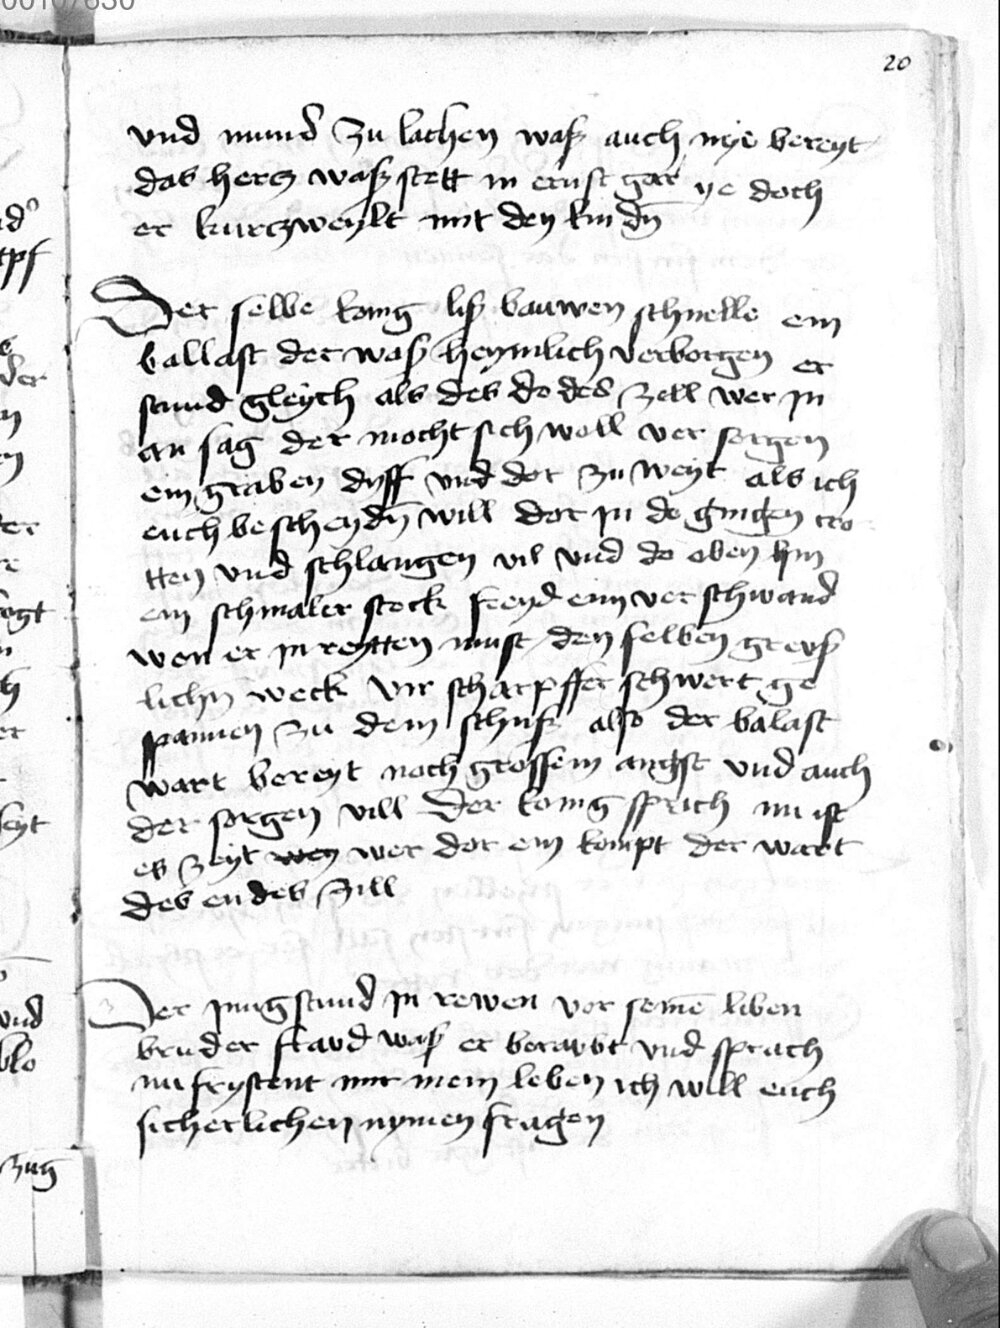 00107630
20
vnd mund zu lachen waß auch nye bereyt
das hercz waß stett in ernst gar ye doch
er kurczweylt mit den kindn̄
Der selbe konig liß bauwen schnelle ein
ballast der waß heymlich verborgen er
stund gleych als des dodes zell wer in
an sag der mocht sich woll ver sorgen
ein graben dyff vnd dor zu weyt als ich
euch be scheydn̄ will dor in do gingen cro
tten vnd schlangen vil vnd do oben hin
ein schmaler steck freyd eim ver schwand
wen er in reytten must den selben greyß
lichn weck vir scharpffer schwert ge
spannen zu dem schuß also der balast
wart bereyt noch grossem angst vnd auch
der sorgen vill Der konig sprich nu ist
es zeyt wer dor ein kompt der wart
des endes zill
Der jung stund in rewen vor seinē liben
bruder fraud waß er beraubt vnd sprach
nu frystent mir mein leben ich will euch
sicherlichen nymen fragen